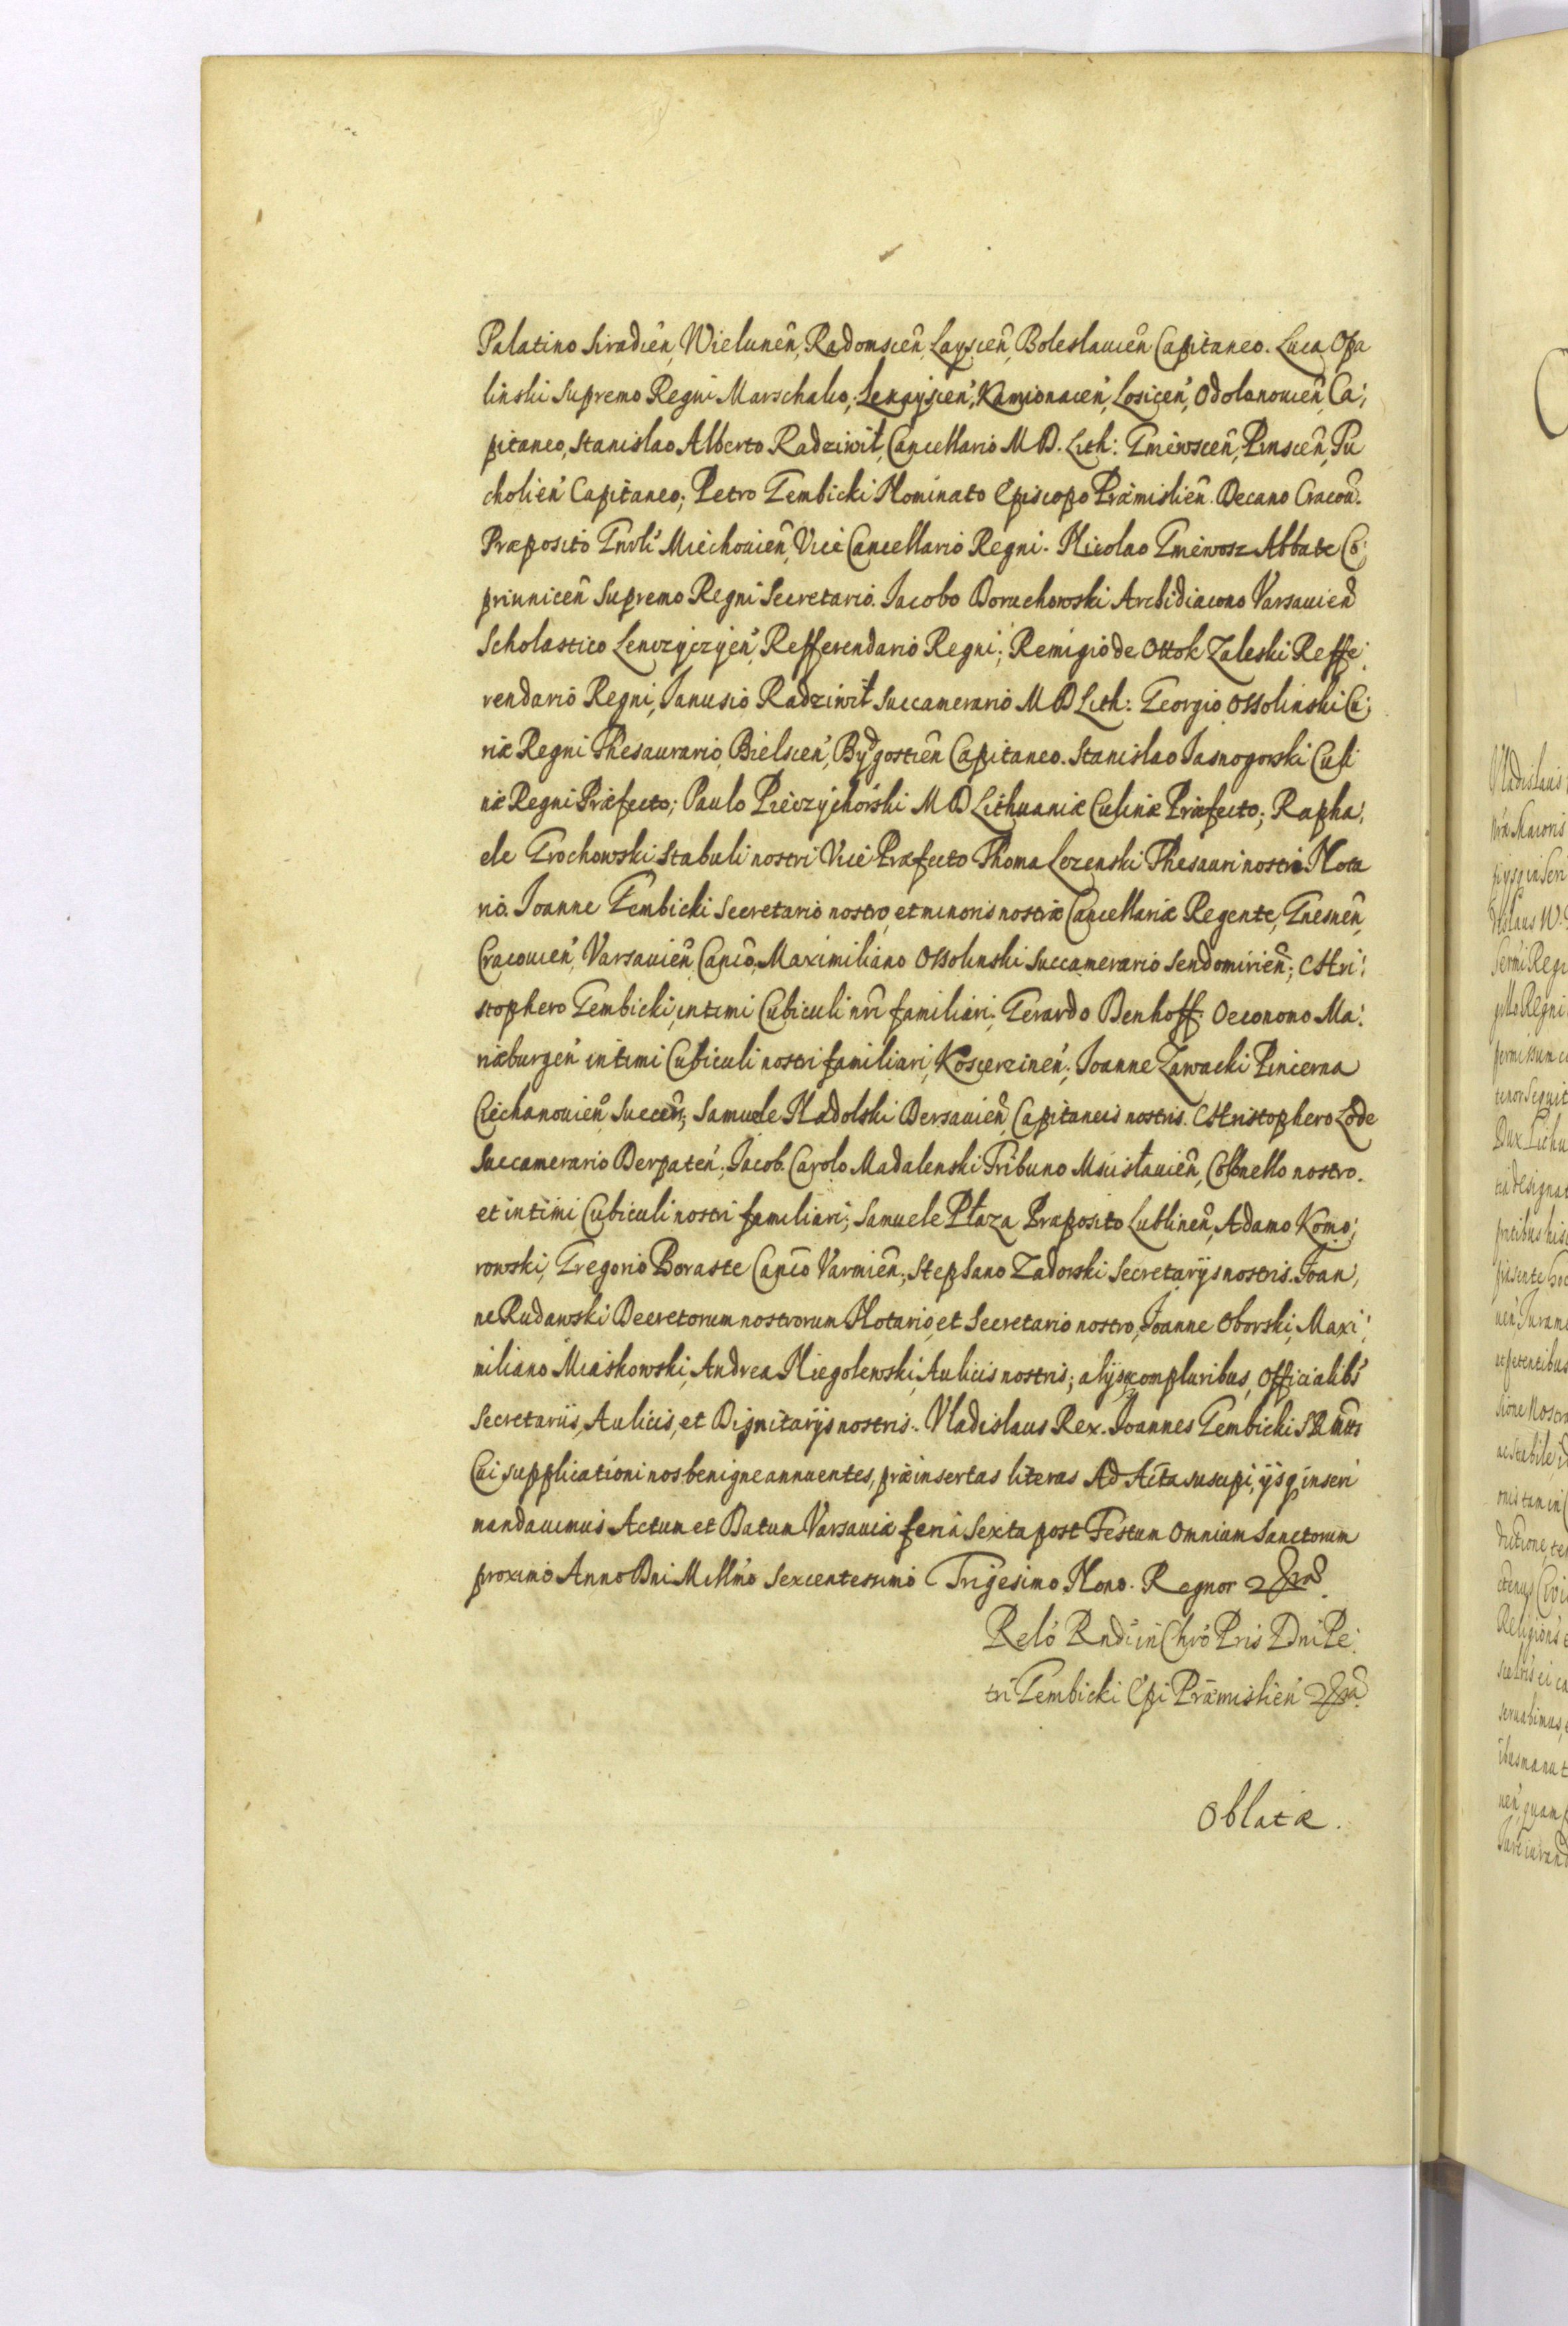 Palatino Siradień, Wielunień, Radomscień, Layscień, Boleslauień Capitaneo. Luca Opa
linski Supremo Regni Marschalco, Lezayscień, Kamionacień, Losicień, Odolanouień, Ca,
pitaneo, Stanislao Alberto Radziwił, Cancellario M D. Lith: Gniewscień, Pinscień, Tu
cholień Capitaneo; Petro Gembicki Nominato Episcopo Præmislień. Decano Cracou.
Præposito Gnrli Miechouień, Vice Cancellario Regni. Nicolao Gniewosz Abbate Co,
priunicen Supremo Regni Secretario. Jacobo Boruchowski Archidiacono Varsauień
Scholastico Lenczyczyeń, Refferendario Regni; Remigio de Ottok Zaleski Reffe,
rendario Regni, Janusio Radziwił Succamerario M D Lith: Georgio Ossolinski Cu,
riæ Regni Thesaurario, Bielscień, Bydgostień Capitaneo. Stanislao Jasnogorski Culi
næ Regni Præfecto; Paulo Pieczychorski M D Lithuaniæ Culinæ Præfecto; Rapha,
ele Grochowski Stabuli nostri Vice Præfecto Thoma Lezenski Thesauri nostri Nota
rio. Joanne Gembicki Secretario nostro, et minoris nostræ Cancellariæ Regente, Gnesneń,
Cracouień, Varsauień Canco, Maximiliano Ossolinski Succamerario Sendomirień; CHri,
stophero Gembicki, intimi Cubiculi nri familiari; Gerardo Denhoff Oeconomo Ma,
riæburgeń intimi Cubiculi nostri familiari, Koscerzineń; Joanne Zawacki Pincerna
Ciechanouień Succeń; Samuele Nadolski Bersauień Capitaneis nostris. CHristophero Lode
Succamerario Derpateń; Jacob. Carolo Madalenski Tribuno Mscisłauień, Colonello nostro.
et intimi Cubiculi nostri familiari; Samuele Płaza Præposito Lublineń, Adamo Komo,
rowski, Gregorio Boraste Canco Varmień, Stephano Zadorski Secretarijs nostris. Joan,
ne Rudawski Decretorum nostrorum Notario, et Secretario nostro, Joanne Oborski, Maxi,
miliano Miaskowski, Andrea Niegolewski, Aulicis nostris; alijsq compluribus, Officialibs
Secretariis, Aulicis, et Dignitarijs nostris. Vladislaus Rex. Joannes Gembicki S R Mtis
Cui supplicationi nos benigne annuentes, præinsertas literas Ad Acta suscipi, ijsq inseri
mandauimus Actum et Datum Varsauiæ feria Sexta post Festum Omnium Sanctorum
proximo Anno Dni Millmo Sexcentesimo Trigesimo Nono. Regnor
Relo Rndi in Chro Pris Dni Pe,
tri Gembicki Epi Præmislień
Oblata.